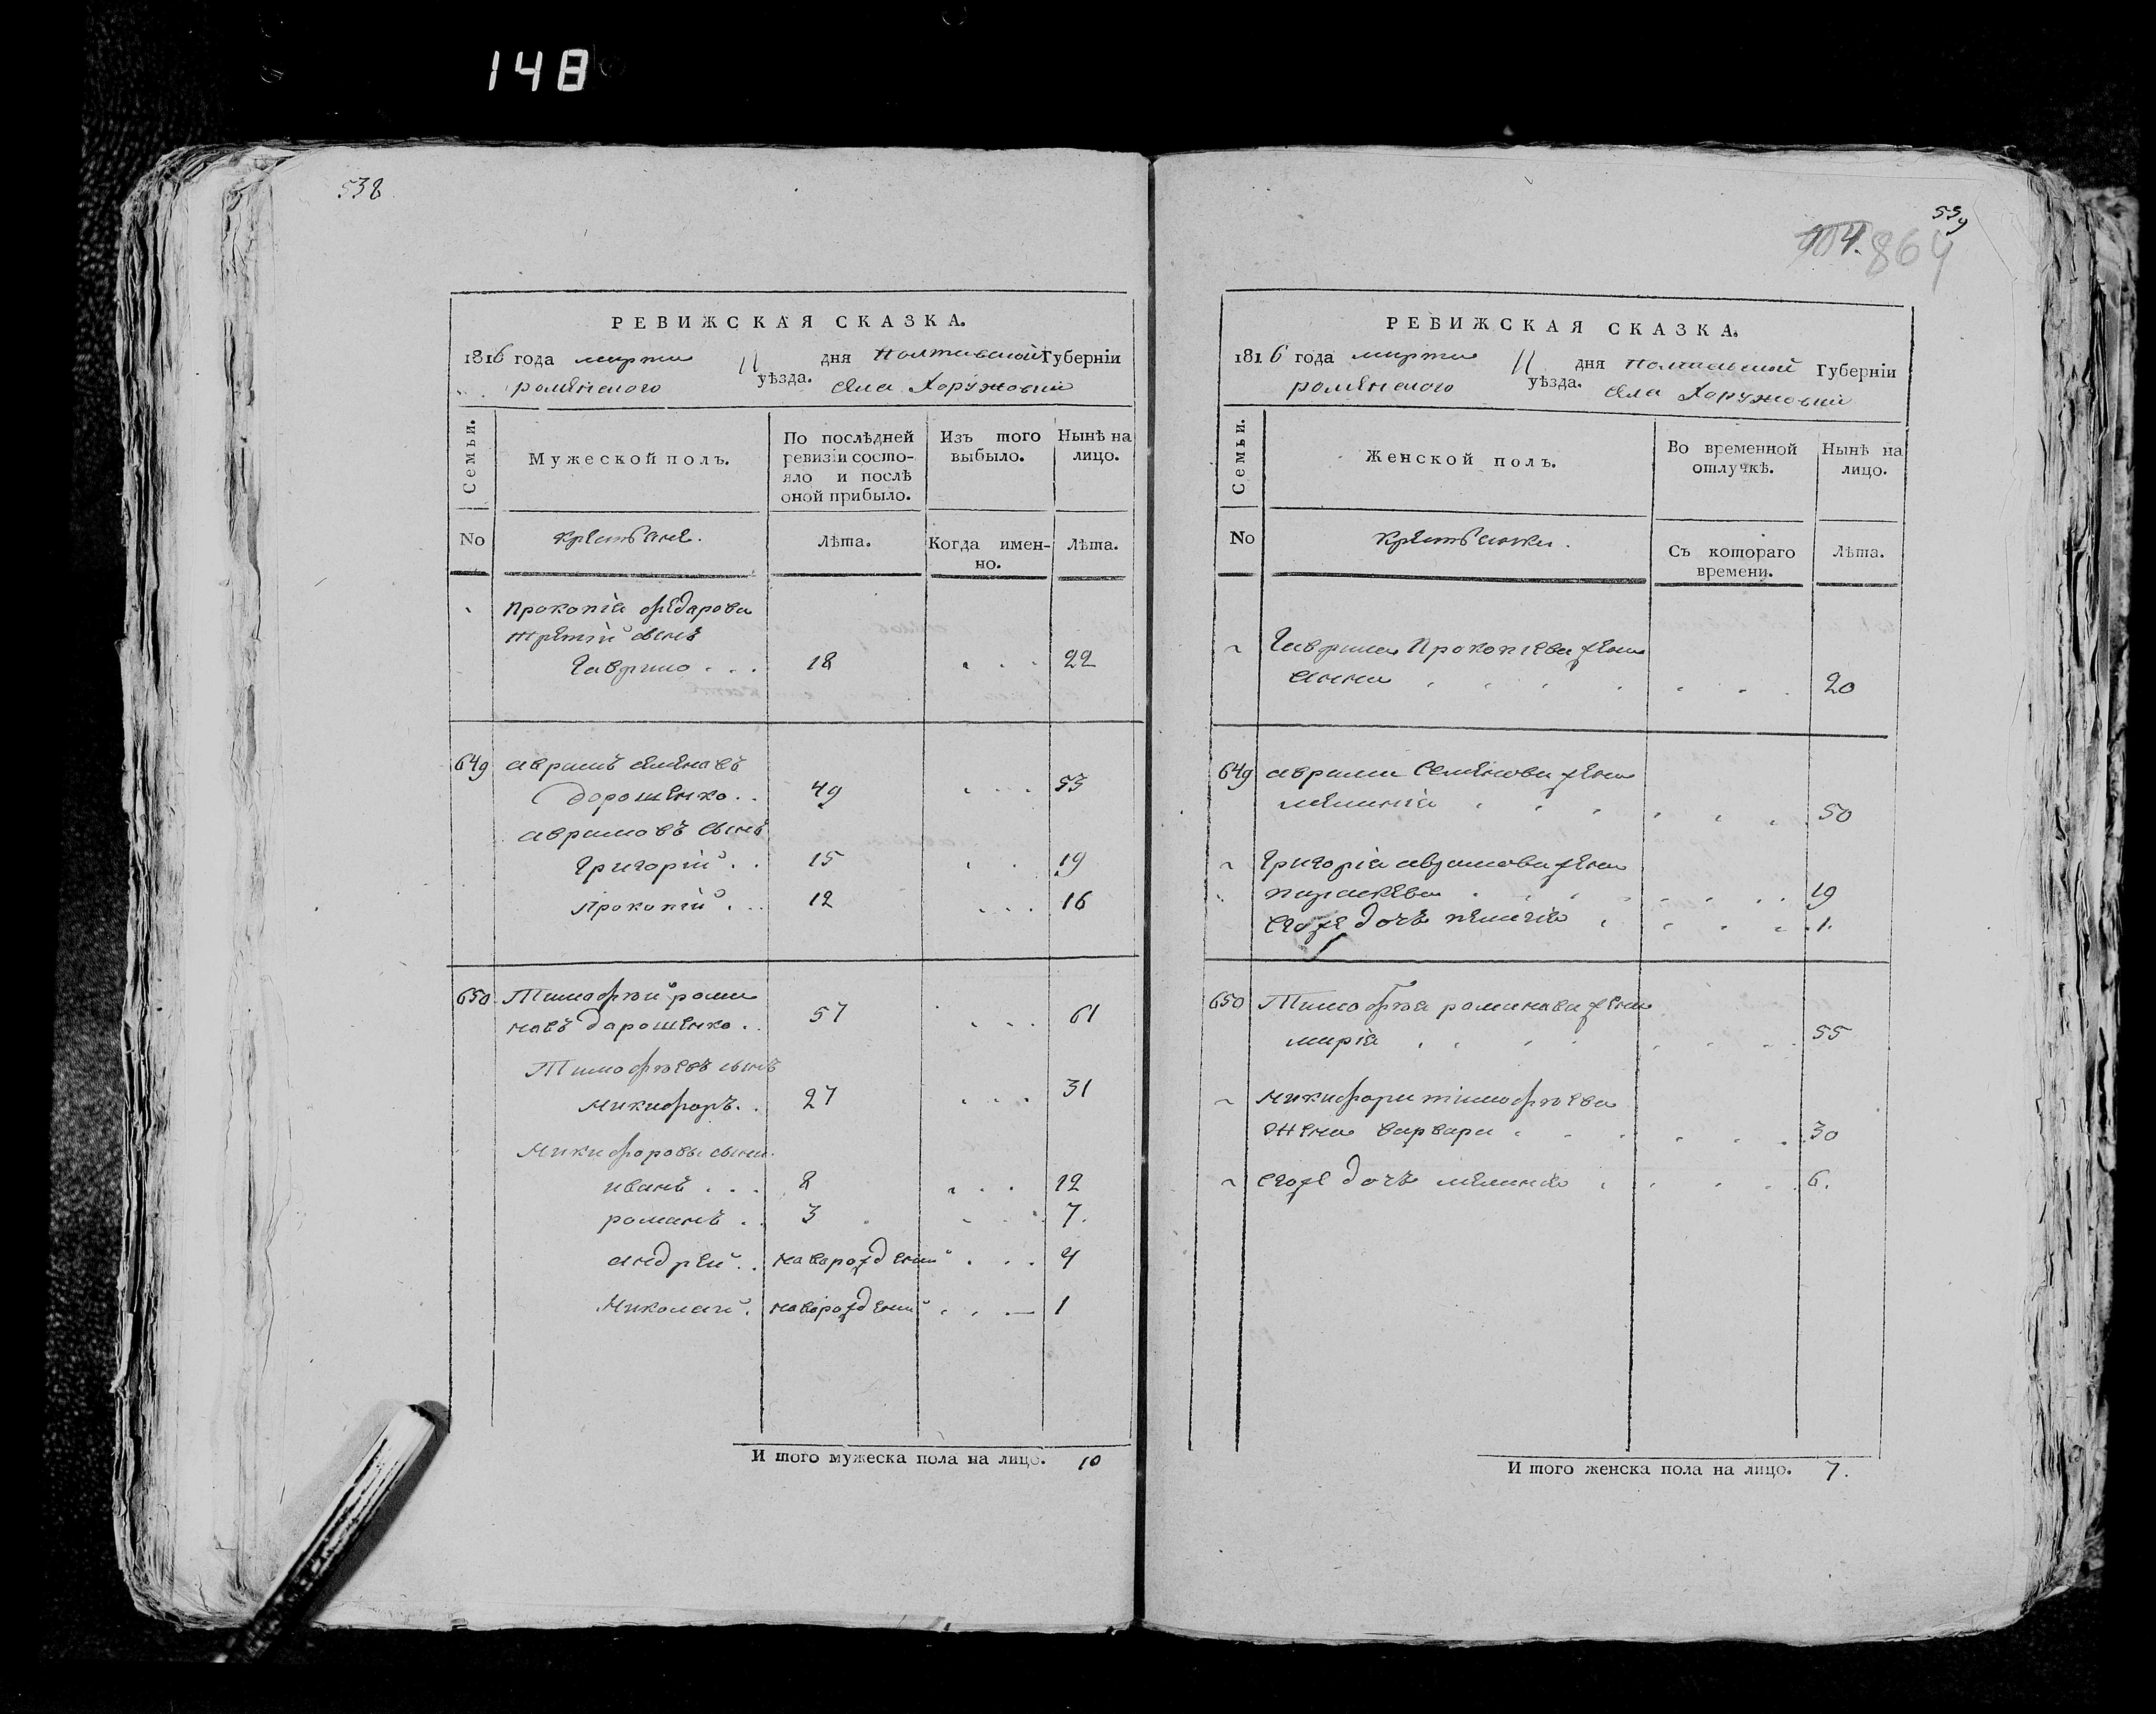 148
538
РЕВИЖСКАЯ СКАЗКА.
1816 года марта 11 дня Полтавской Губернїи
роменского уѣзда. села Хоружовки
Семьи.
Мужеской полъ.
По послѣдней ревизїи состояло и послѣ оной прибыло.
Изъ того выбыло.
Нынѣ на лицо.
No
крестьяне.
лѣта.
Когда именно.
лѣта.
Прокопїя федарова
третїй сынъ
Гаврило . . . 18 . . . 22
649 аврамъ семеновъ
Дорошенко . . 49 . . . 53
аврамовъ сынъ
Григорїй . . 15 . . 19
Прокопїй . . . 12 . . . 16
650 Тимофѣй рома
новъ дарошенко . . 57 . . . 61
Тимофѣевъ сынъ
Никифоръ . . 27 . . . 31
Никифоровы сыни
иванъ . . . 8 . . . 12
романъ . . 3 . . . 7.
андрей . . новорождений . . . 4
Николай . новорождений . . — 1
И того мужеска пола на лицо. 10
539
864
РЕВИЖСКАЯ СКАЗКА.
1816 года марта 11 дня полтавской Губернїи
роменского уѣзда. села Хоружовки
Семьи.
Женской полъ.
Во временной отлучкѣ.
Нынѣ на лицо.
No
крестьянки.
Съ котораго времени.
Лѣта.
Гаврила Прокопїева жена
анна . . . . . . . . 20
649 аврама Семенова жена
меланїя . . . . . . . 50
Григорїя аврамова жена
параскева . . . . . . . . 19
егоже дочь . . . . . 1.
650 Тимофѣя раманова жена
марїя . . . . . . . 55
никифора тимофѣева
жена варвара . . . . . . . 30
егоже дочь меланїя . . . . . 6.
И того женска пола на лицо. 7.